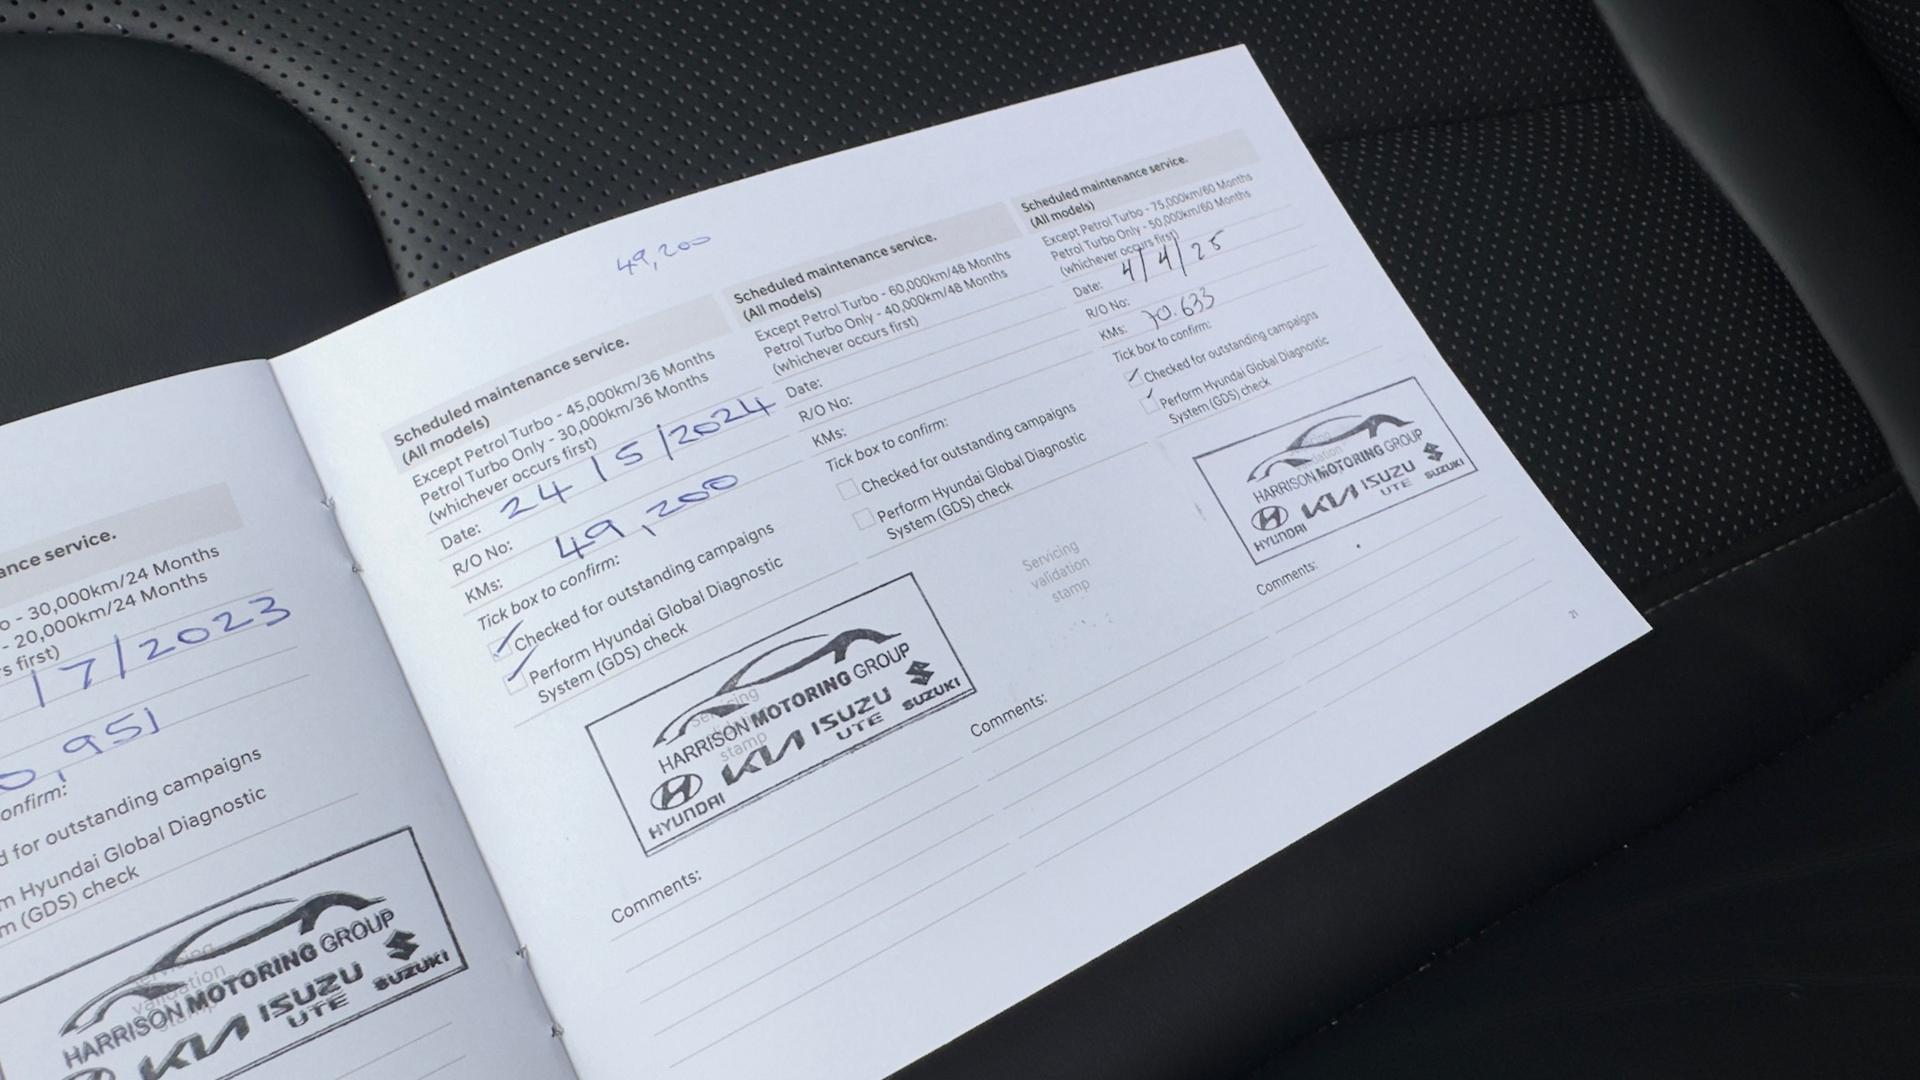 ance service.
o - 30,000km/24 Months
- 20,000km/24 Months
s first)
/7/2023
,951
onfirm:
d for outstanding campaigns
m Hyundai Global Diagnostic
m (GDS) check
HARRISON MOTORING GROUP
KIA ISUZU UTE SUZUKI
49,200
Scheduled maintenance service.
(All models)
Except Petrol Turbo - 45,000km/36 Months
Petrol Turbo Only - 30,000km/36 Months
(whichever occurs first)
Date: 24/5/2024
R/O No:
KMs: 49,200
Tick box to confirm:
Checked for outstanding campaigns
Perform Hyundai Global Diagnostic
System (GDS) check
Servicing
stamp
HARRISON MOTORING GROUP
HYUNDAI KIA ISUZU UTE SUZUKI
Comments:
Scheduled maintenance service.
(All models)
Except Petrol Turbo - 60,000km/48 Months
Petrol Turbo Only - 40,000km/48 Months
(whichever occurs first)
Date:
R/O No:
KMs:
Tick box to confirm:
Checked for outstanding campaigns
Perform Hyundai Global Diagnostic
System (GDS) check
Servicing
validation
stamp
Comments:
Scheduled maintenance service.
(All models)
Except Petrol Turbo - 75,000km/60 Months
Petrol Turbo Only - 50,000km/60 Months
(whichever occurs first)
Date: 4/4/25
R/O No:
KMs: 70.633
Tick box to confirm:
Checked for outstanding campaigns
Perform Hyundai Global Diagnostic
System (GDS) check
HARRISON MOTORING GROUP
HYUNDAI KIA ISUZU UTE SUZUKI
Comments:
21